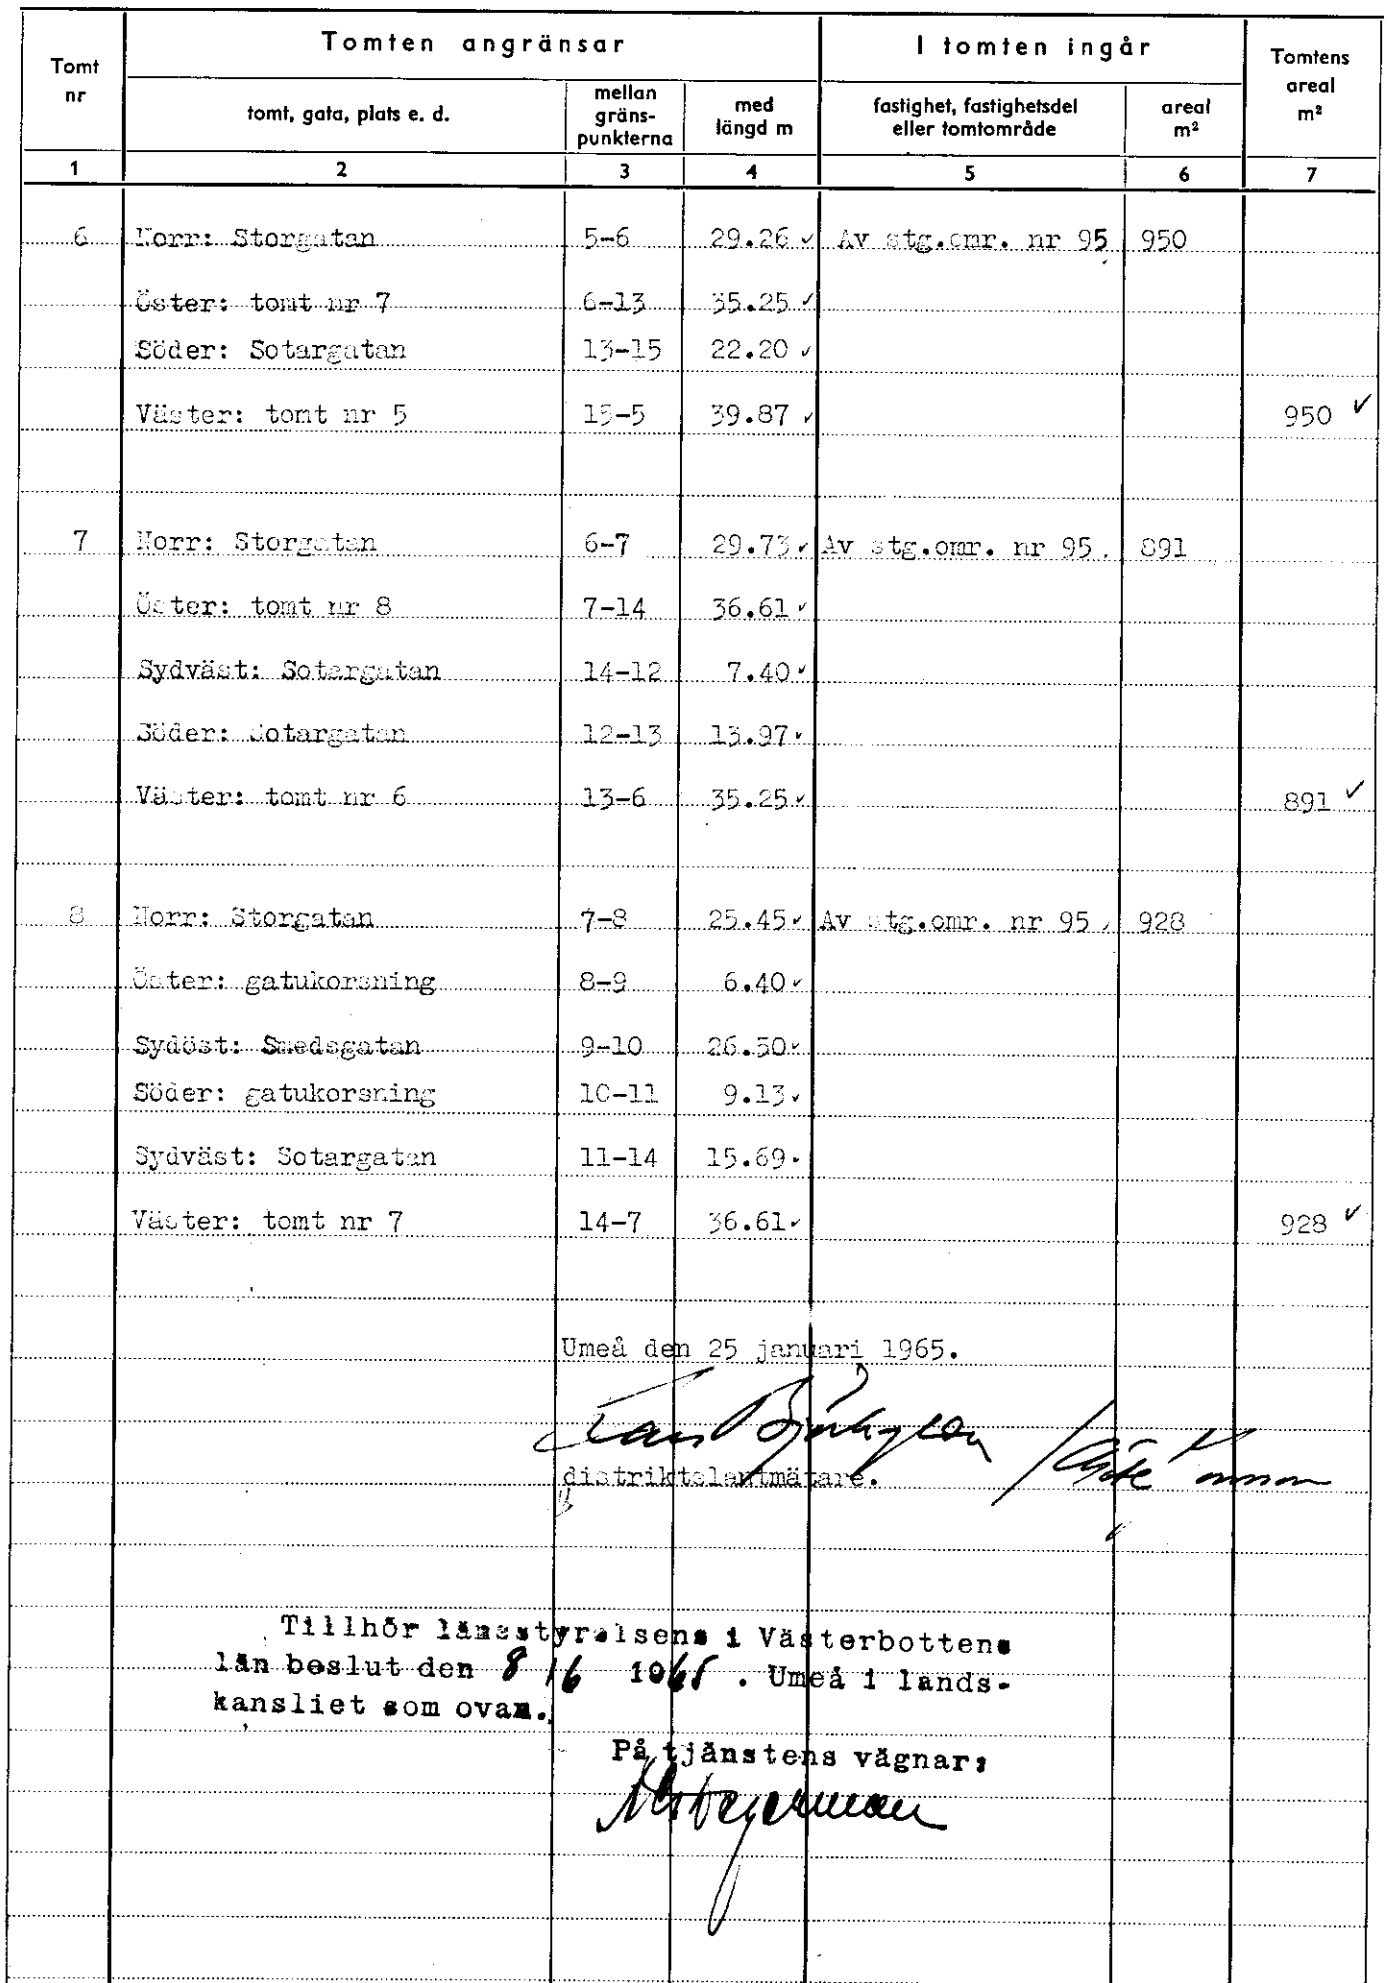 Tomt nr
Tomten angränsar
I tomten ingår
Tomtens areal m²
tomt, gata, plats e. d.
mellan gräns-punkterna
med längd m
fastighet, fastighetsdel eller tomtområde
areal m²
1 2 3 4 5 6 7
6 Norr: Storgatan 5-6 29.26 ✓ Av stg.omr. nr 95 950
Öster: tomt nr 7 6-13 35.25 ✓
Söder: Sotargatan 13-15 22.20 ✓
Väster: tomt nr 5 15-5 39.87 ✓ 950 ✓
7 Norr: Storgatan 6-7 29.73 ✓ Av stg.omr. nr 95. 891
Öster: tomt nr 8 7-14 36.61 ✓
Sydväst: Sotargatan 14-12 7.40 ✓
Söder: Sotargatan 12-13 13.97 ✓
Väster: tomt nr 6 13-6 35.25 ✓ 891 ✓
8 Norr: Storgatan 7-8 25.45 ✓ Av stg.omr. nr 95. 928
Öster: gatukorsning 8-9 6.40 ✓
Sydöst: Smedsgatan 9-10 26.50 ✓
Söder: gatukorsning 10-11 9.13 ✓
Sydväst: Sotargatan 11-14 15.69 ✓
Väster: tomt nr 7 14-7 36.61 ✓ 928 ✓
Umeå den 25 januari 1965.
distriktslantmätare.
Tillhör länsstyrelsens i Västerbottens
län beslut den 8/6 1965. Umeå i lands-
kansliet som ovan.
På tjänstens vägnar: